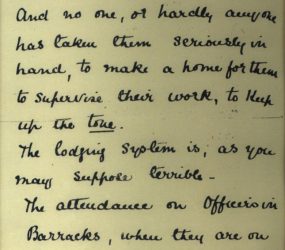 And no one, or hardly anyone
has taken them seriously in
hand, to make a home for them
to supervise their work, to keep
up the tone.
The lodging system is, as you
may suppose terrible -
The attendance on Officers in
Barracks, when they are on